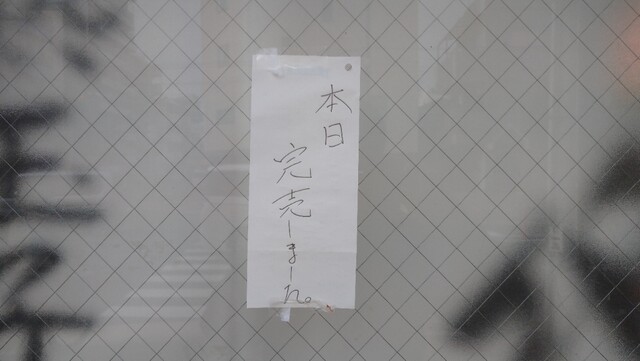 本日
完売しました。